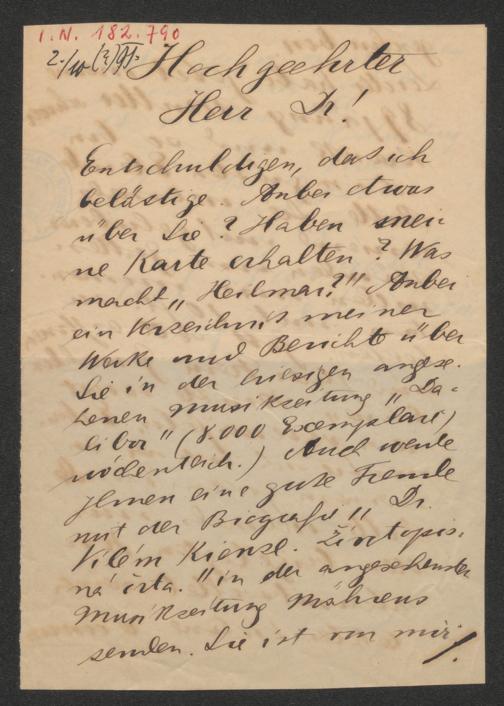 I.N. 182.790
2./10 (?) 91.
Hochgeehrter
Herr Dr!
Entschuldigen, das ich
belästige. Anbei etwas
über Sie? Haben mei
ne Karte erhalten? Was
macht „Heilmar?" Anbei
ein Verzeichnis meiner
Werke und Berichte über
Sie in der hiesigen angese-
henen Musikzeitung „Da-
libor" (8.000 Exemplare)
wödentlich.) Auch werde
Ihnen eine gute Freude
mit der Biografii „Dr.
Vilém Kienzl. Životopis-
ná črta." in der angesehensten
Musikzeitung Mährens
senden. Sie ist von mir